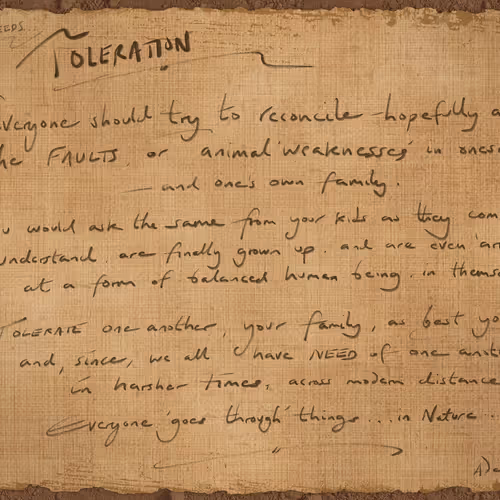 TOLERATION
everyone should try to reconcile hopefully a
he FAULTS or animal 'weaknesses' in ones
— and one's own family.
u would ask the same from your kids as they com
understand. are finally grown up. and are even 'arr
at a form of balanced human being. in thems
TOLERATE one another, your family, as best yo
and, since, we all have NEED of one anot
in harsher times, across modern distance
Everyone 'goes through' things ... in Nature.